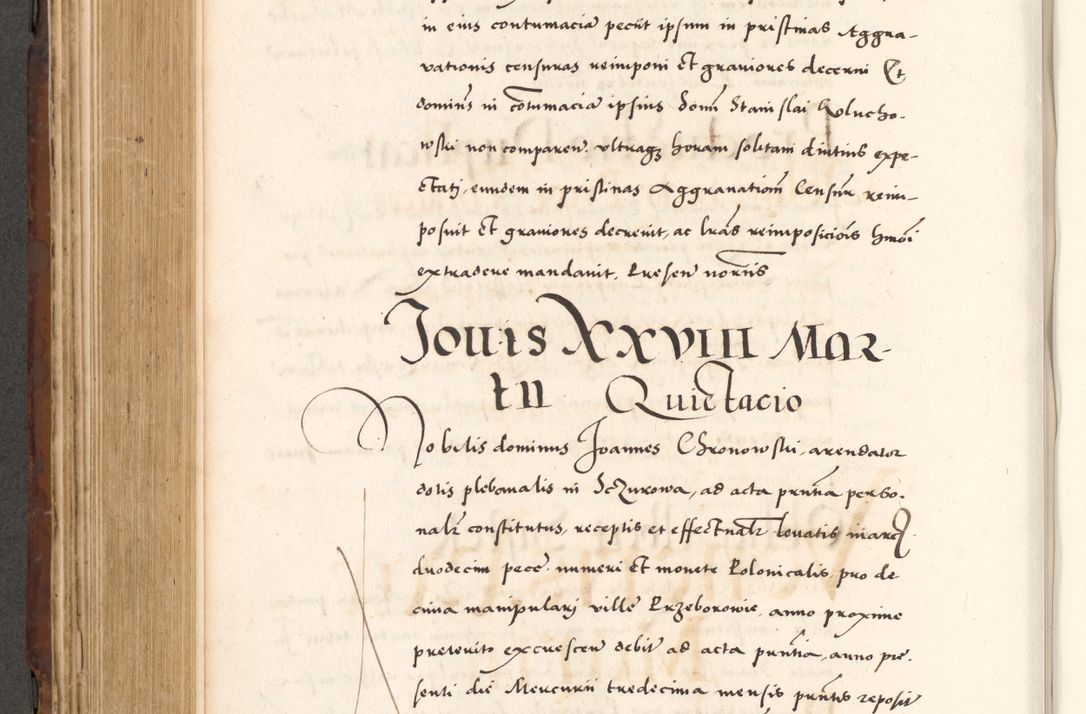 in eius contumacia petiit ipsum in pristinas Aggra-
vationis censuras reimponi Et graviores decerni Et
dominus in cōtumacia ipsius Domī Stanislai Kolucho-
wski non comparen. ultraqz horam solitam diutius expe-
ctati, eundem in pristinas Aggravationum Censur reim-
posuit Et graviores decrevit, ac lrās reimposiciōis hmōi
extradere mandavit, Presen notariis
Iouis XXVIII Mar-
tii Quietacio
Nobilis dominus Joannes Chronowski, arendator
dotis plebanalis in Sczurowa, ad acta pnntia perso-
nalr constitutus, receptis et effectualr levatis marcis
duodecim pece. numeri Et monete Polonicalis, pro de
cima manipulari ville Przeborowie, anno proxime
preterito excrescen debit ad acta pnntia, anno pre-
senti die Mercurii tredecima mensis pnntis reposit